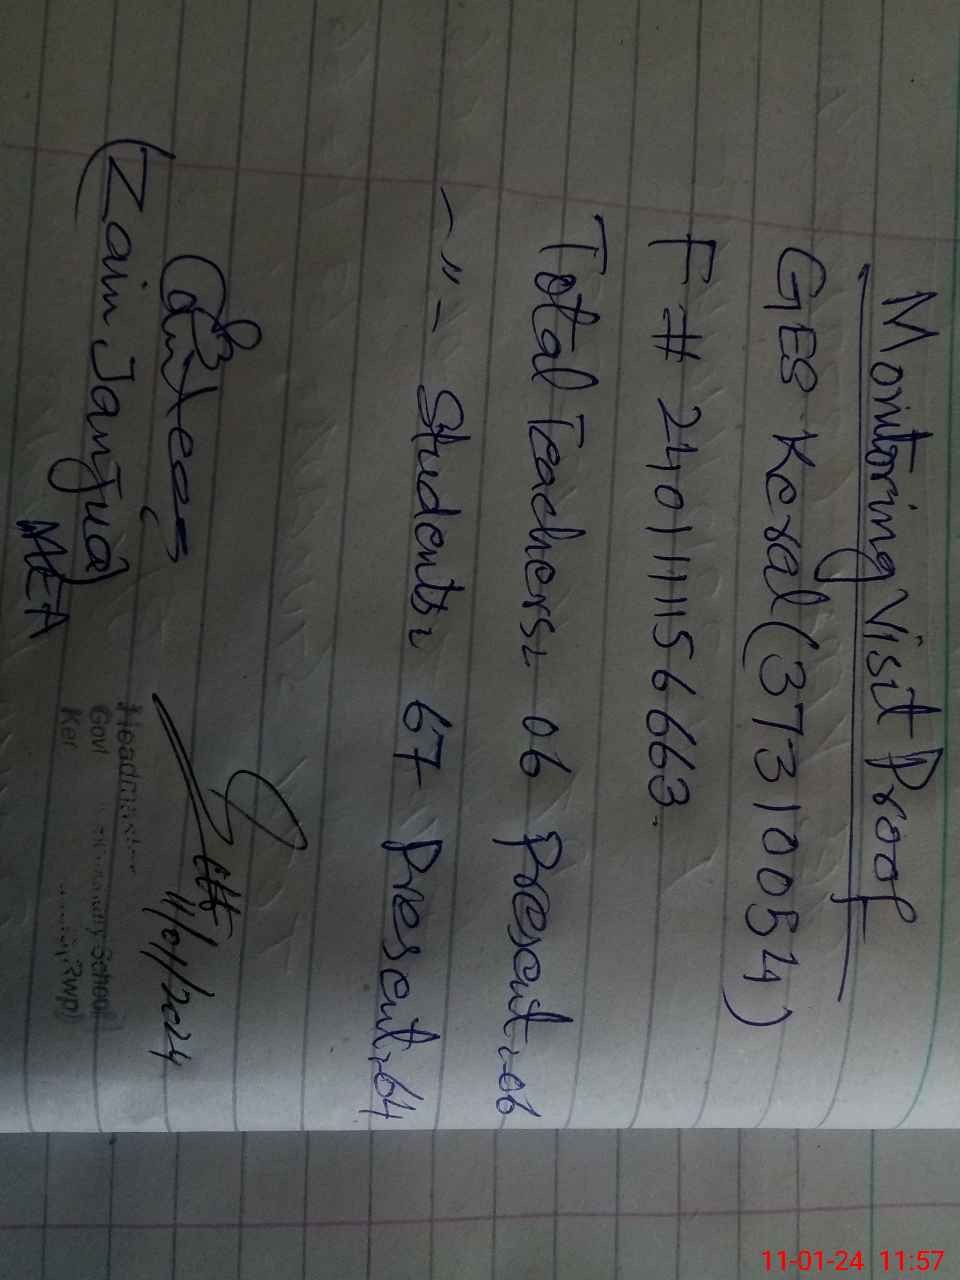 Monitoring Visit Proof
GES Keral (37310054)
F # 24011115 6663.
Total Teachers = 06 Present = 06
— " — Students = 67 Present = 64
(Zain Janjua)
MEA
11/01/2024
Headmaster
Govt School
Ker Rwp)
11-01-24 11:57